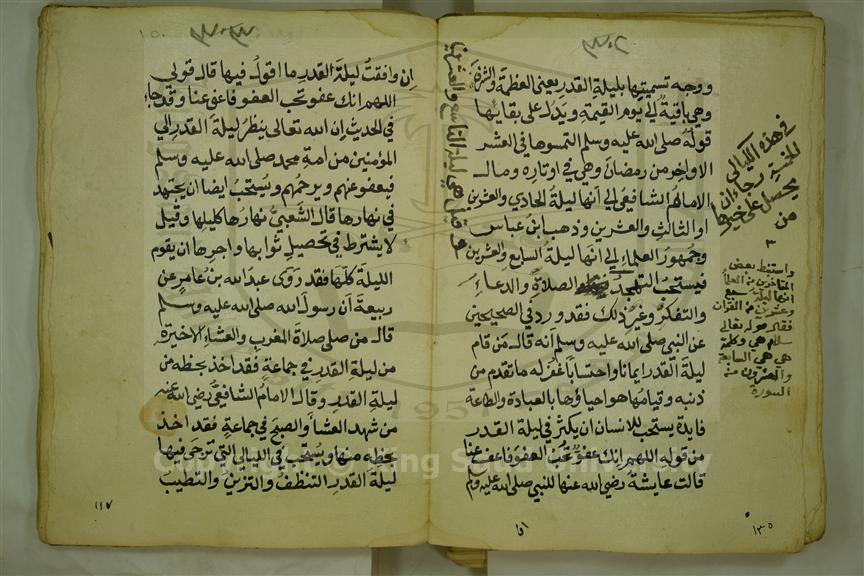 ووجه تسميتها بليلة القدر يعنى العظمة والشرف
وهي باقية الي يوم القيمة ويدل على بقايها
قوله صلى الله عليه وسلم التمسوها في العشر
الاواخر من رمضان وهي في اوتاره ومال
الامام الشافعي الي انها ليلة الحادي والعشرين
او الثالث والعشرين وذهب ابن عباس
وجمهور العلماء الي انها ليلة السابع والعشرين
فيستحب التهجد الصلاة والدعاء
والتفكر وغير ذلك فقد ورد في الصحيحين
عن النبي صلى الله عليه وسلم انه قال من قام
ليلة القدر ايمانا واحتسابا غفر له ما تقدم من
ذنبه وقيامها هو احياؤها بالعبادة والطاعة
فايدة يستحب للانسان ان يكثر في ليلة القدر
من قوله اللهم انك عفو تحب العفو فاعف عنا
قالت عايشة رضي الله عنها للنبي صلى الله عليه وسلم
ان
١٣٥
وقيل هي ليلة التاسع والعشرين
في هذه الليالي
الخمسة رجاء ان
يحصل على خيرها
من
٣
واستنبط بعض
المتاخرين من العلماء
انها ليلة سبع
وعشرين من القران
فقال قوله تعالى
سلام هي وكلمة
هي هي السابعة
والعشرون من
السورة
ان وافقت ليلة القدر ما اقول فيها قال قولي
اللهم انك عفو تحب العفو فاعفو عنا وقد جاء
في الحديث ان الله تعالى ينظر ليلة القدر الي
المؤمنين من امة محمد صلى الله عليه وسلم
فيعفو عنهم ويرحمهم ويستحب ايضا ان يجتهد
في نهارها قال الشعبي نهارها كليلها وقيل
لا يشترط في تحصيل ثوابها واجرها ان يقوم
الليلة كلها فقد روى عبد الله بن عامر عن
ربيعة ان رسول الله صلى الله عليه وسلم
قال من صلى صلاة المغرب والعشاء الاخيرة
من ليلة القدر في جماعة فقد اخذ بحظه من
ليلة القدر وقال الامام الشافعي رضي الله عنه
من شهد العشا والصبح في جماعة فقد اخذ
بحظه منها ويستحب في الليالي التي ترجى فيها
ليلة القدر التنظف والتزين والتطيب
١١٧
Copyright © King Saud University
1957